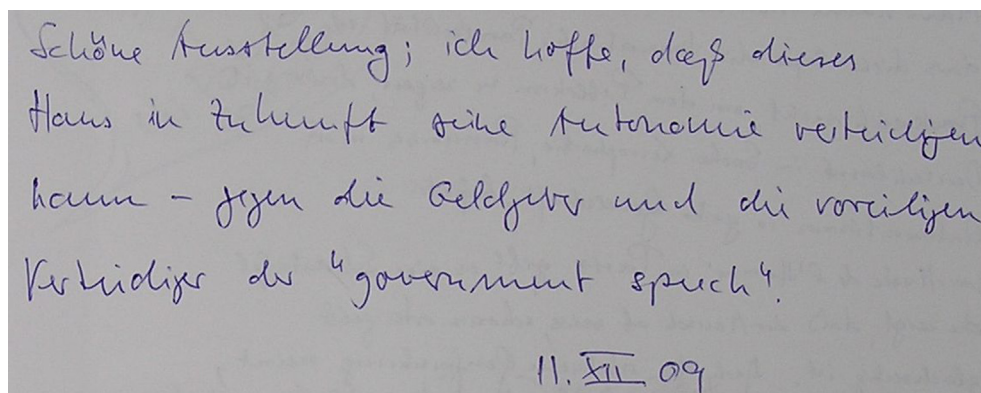 Schöne Ausstellung; ich hoffe, daß dieses
Haus in Zukunft seine Autonomie verteidigen
kann – gegen die Geldgeber und die voreiligen
Verteidiger der "government speech".
11. XII 09